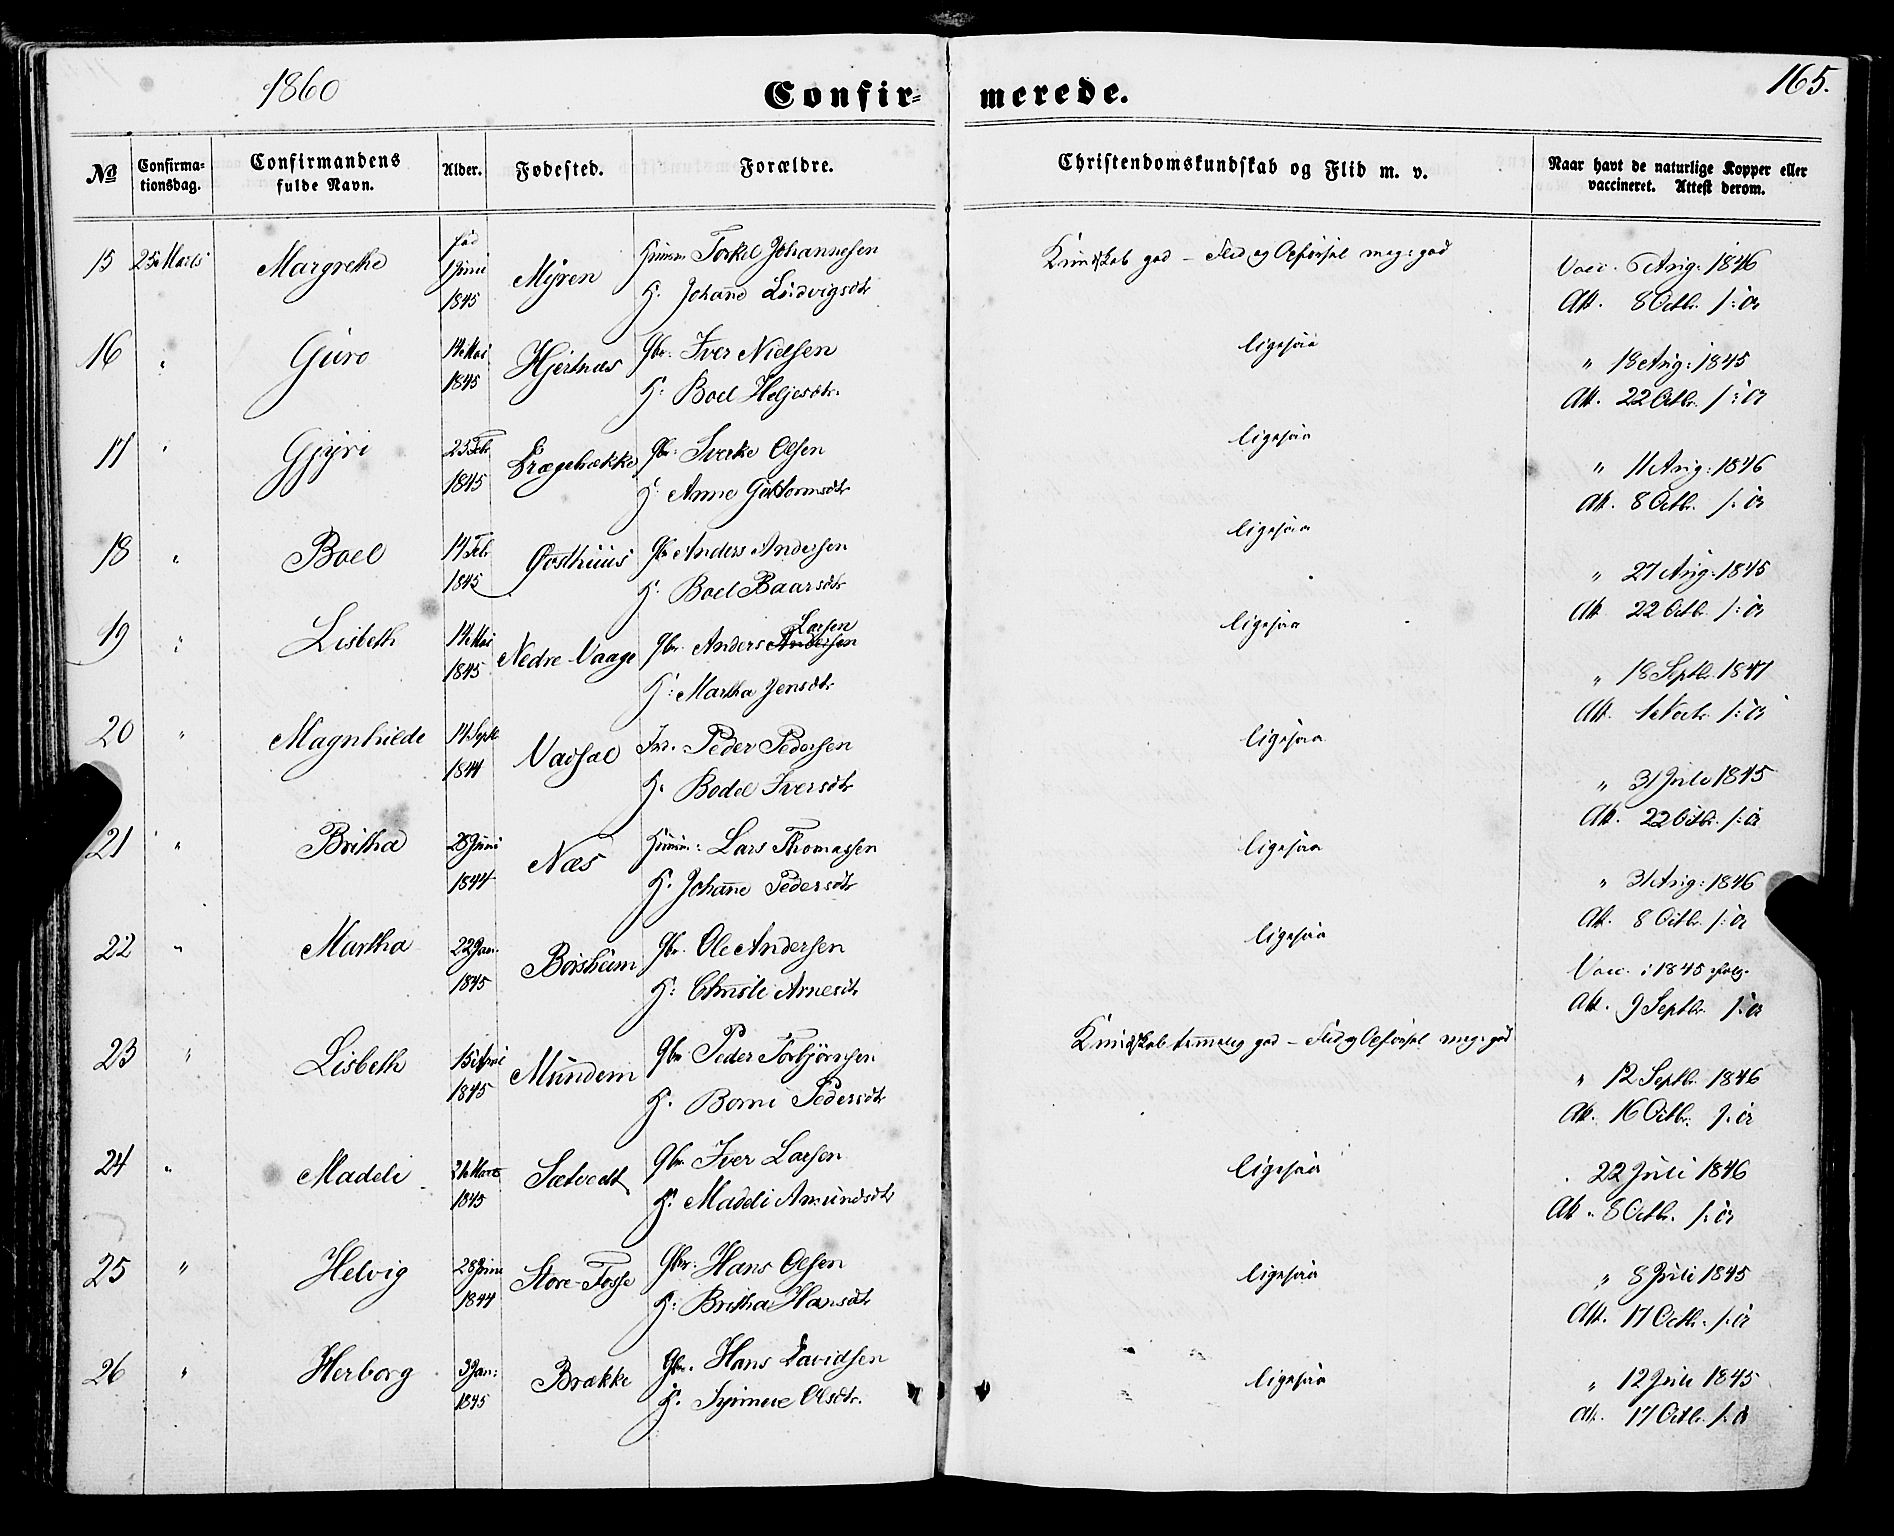 1860
Confir= merede.
165.
No
Confirma-
tionsdag.
Confirmandens
fulde Navn.
Alder.
Fødested.
Forældre.
Christendomskundskab og Flid m. v.
Naar havt de naturlige Kopper eller
vaccineret. Attest derom.
15 25 Marts Margrethe fød 1 Juni 1845 Myren Huusm. Torkel Johannesen
H. Johanne Ludvigsdtr
Kundskab god – Flid og Opførsel meg: god
Vacc. 6 Aug: 1846
Att. 8 Octbr. s: år
16 " Guro 14 Mai 1845 Hjertnæs Gbr. Iver Nielsen
H: Boel Heljesdtr.
ligesaa
" 18 Aug: 1845
Att. 22 Octbr. s: år
17 " Gjyri 23 Feb 1845 Drægebække Gbr. Sverke Olsen
H: Anne Guttormsdtr
ligesaa
" 11 Aug: 1846
Att. 8 Octbr. s: år
18 " Boel 14 Feb 1845 Øosthuus Gbr Anders Andersen
H: Boel Baarsdtr
ligesaa
" 27 Aug: 1845
Att 22 Octbr. s: år
19 " Lisbeth 14 Mai 1845 Nedre Vaage Gbr. Anders Andersen Larsen
H: Martha Jensdtr
ligesaa
" 18 Septbr. 1847
Att. 1 Octr. s: år
20 " Magnhilde 14 Sept 1844 Vadsal Ind. Peder Pedersen
H. Bodel Iversdtr
ligesaa
" 31 Juli 1845
Att. 22 Octbr. s: år
21 " Britha 28 Juni 1844 Næs Huusm: Lars Thomassen
H. Johanne Pedersdtr
ligesaa
" 31 Aug: 1846
Att. 8 Octbr. s: år
22 " Martha 22 Jan. 1845 Børsheim Gbr. Ole Andersen
H: Christi Arnesdtr
ligesaa
Vacc. i 1845
Att. 9 Septbr. s: år
23 " Lisbeth 15 April 1845 Mundem Gbr Peder Torbjörnsen
H. Borni Pedersdtr
Kundskab temmelig god – Flid og Opførsel meg: god
" 12 Septbr. 1846
Att. 16 Octbr. s: år
24 " Madeli 24 Marts 1845 Sætvedt Gbr. Iver Larsen
H. Madeli Amundsdtr
ligesaa
22 Juli 1846
Att. 8 Octbr. s: år
25 " Helvig 28 Juni 1844 Store-Fosse Gbr: Hans Olsen
H: Britha Hansdtr
ligesaa
" 8 Juli 1845
Att. 17 Octbr. s: år
26 " Herborg 3 Jan: 1845 Brække Gbr. Hans Davidsen
H. Synneve Olsdtr.
ligesaa
" 12 Juli 1845
Att. 17 Octbr. s: år